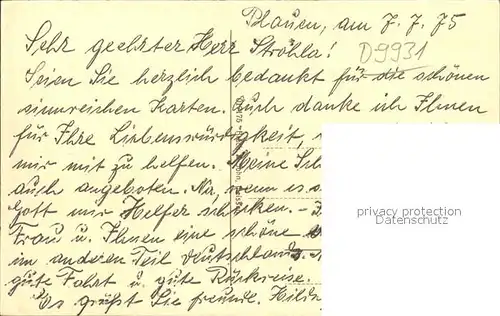 Plauen, am 7. 7. 75
Sehr geehrter Herr Ströhla!
D9931
Seien Sie herzlich bedankt für die schönen
sinnreichen Karten. Auch danke ich Ihnen
für Ihre Liebenswürdigkeit,
mir mit zu helfen. Meine Sch
auch angeboten. Na, wenn es s
Gott mir Helfer schicken. –
Frau u. Ihnen eine schöne
im anderen Teil Deutschlands
gute Fahrt u. gute Rückreise.
Es grüßt Sie freundl. Hild
privacy protection
Datenschutz